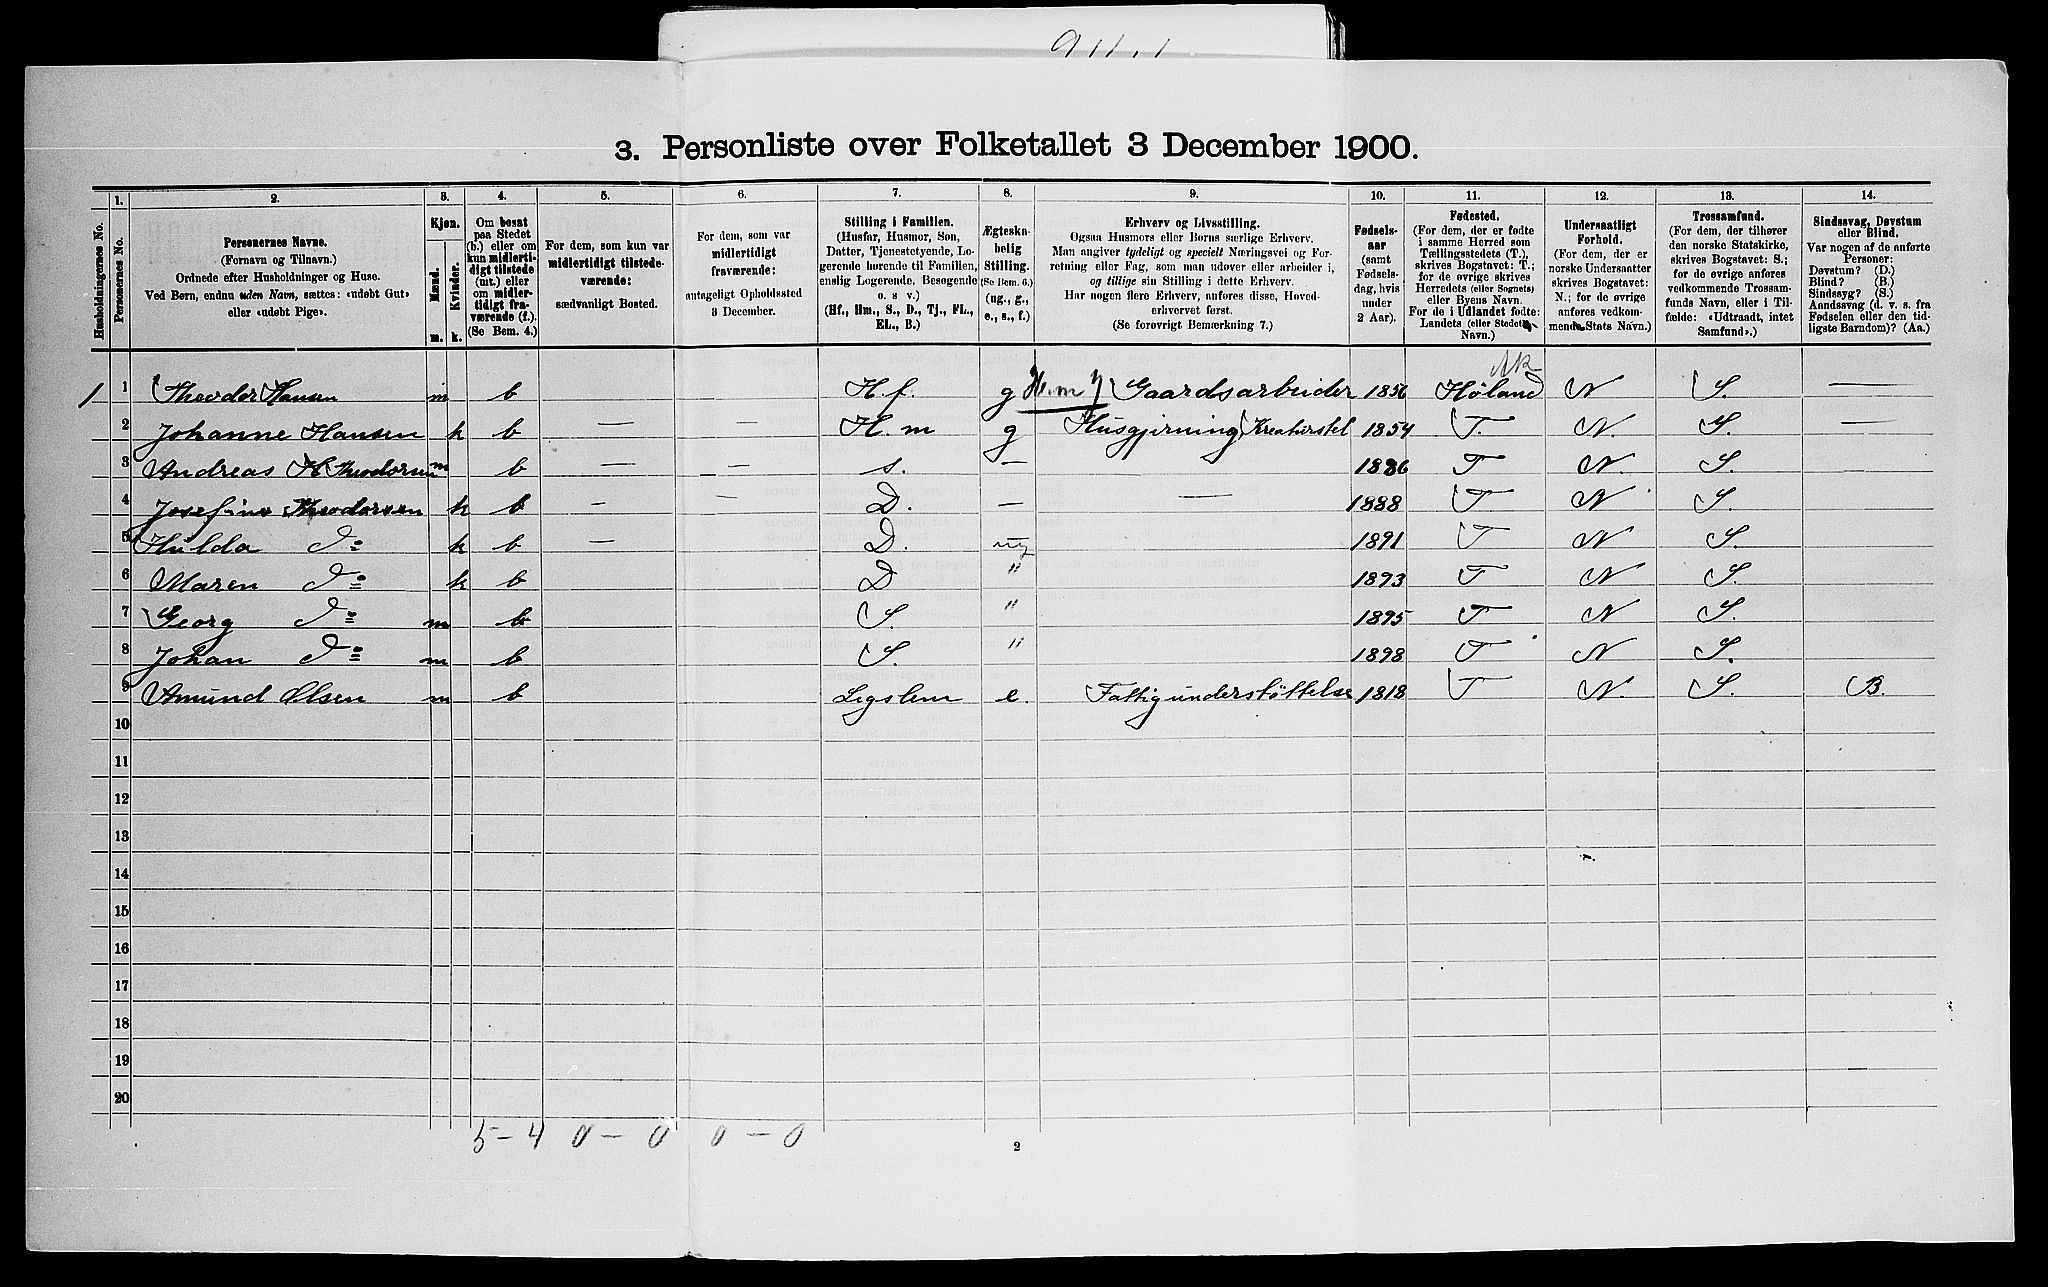 911.1
3. Personliste over Folketallet 3 December 1900.
1. 2. 3. 4. 5. 6. 7. 8. 9. 10. 11. 12. 13. 14.
Husholdningernes No.
Personernes No.
Personernes Navne.
(Fornavn og Tilnavn.)
Ordnede efter Husholdninger og Huse.
Ved Børn, endnu uden Navn, sættes: «udøbt Gut»
eller «udøbt Pige».
Kjøn.
Mænd.
Kvinder.
m. k.
Om bosat
paa Stedet
(b.) eller om
kun midlerti-
digt tilstede
(mt.) eller
om midler-
tidigt fra-
værende (f.).
(Se Bem. 4.)
For dem, som kun var
midlertidigt tilstede-
værende:
sædvanligt Bosted.
For dem, som var
midlertidigt
fraværende:
antageligt Opholdssted
3 December.
Stilling i Familien.
(Husfar, Husmor, Søn,
Datter, Tjenestetyende, Lo-
gerende hørende til Familien,
enslig Logerende, Besøgende
o. s v.)
(Hf., Hm., S., D., Tj., FL.,
EL., B.)
Ægteska-
belig
Stilling.
(Se Bem. 6.)
(ug., g.,
e., s., f.)
Erhverv og Livsstilling.
Ogsaa Husmors eller Børns særlige Erhverv.
Man angiver tydeligt og specielt Næringsvei og For-
retning eller Fag, som man udøver eller arbeider i,
og tillige sin Stilling i dette Erhverv.
Har nogen flere Erhverv, anføres disse, Hoved-
erhvervet først.
(Se forøvrigt Bemærkning 7.)
Fødsels-
aar
(samt
Fødsels-
dag, hvis
under
2 Aar).
Fødested.
(For dem, der er fødte
i samme Herred som
Tællingsstedets (T.),
skrives Bogstavet: T.;
for de øvrige skrives
Herredets (eller Sognets)
eller Byens Navn.
For de i Udlandet fødte:
Landets (eller Stedets)
Navn.)
Undersaatligt
Forhold.
(For dem, der er
norske Undersaatter
skrives Bogstavet:
N.; for de øvrige
anføres vedkom-
mende Stats Navn.)
Trossamfund.
(For dem, der tilhører
den norske Statskirke,
skrives Bogstavet: S.;
for de øvrige anføres
vedkommende Trossam-
funds Navn, eller i Til-
fælde: «Udtraadt, intet
Samfund».)
Sindssvag, Døvstum
eller Blind.
Var nogen af de anførte
Personer:
Døvstum? (D.)
Blind? (B.)
Sindssyg? (S.)
Aandssvag (d. v. s. fra
Fødselen eller den tid-
ligste Barndom)? (Aa.)
Ak
1 1 Theodor Hansen m b H.f. g Gaardsarbeider 1856 Høland N S. —
2 Johanne Hansen k b — — H.m g Husgjerning, Kreaturstel 1854 T. N. S. —
3 Andreas H Theodorsen m b — — s. — 1886 T N. S. —
4 Josefine Theodorsen k b — — D. — — 1888 T N S.
5 Hulda Do k b — D. ug 1891 T N S.
6 Maren Do k b D " 1893 T N S.
7 Georg Do m b S. " 1895 T N S.
8 Johan Do m b S. " 1898 T N S.
9 Amund Olsen m b Legslem e. Fattigunderstøttelse 1818 T N. S. B.
10
11
12
13
14
15
16
17
18
19
20
5 - 4 0 - 0 0 - 0
2